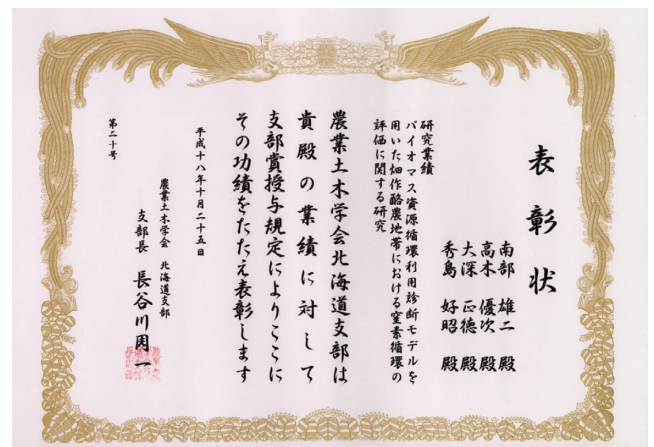 表彰状
南部 雄二 殿
高木 優次 殿
大深 正徳 殿
秀島 好昭 殿
研究業績
バイオマス資源循環利用診断モデルを
用いた畑作酪農地帯における窒素循環の
評価に関する研究
農業土木学会北海道支部は
貴殿の業績に対して
支部賞授与規定によりここに
その功績をたたえ表彰します
平成十八年十月二十五日
農業土木学会 北海道支部
支部長 長谷川周一
第二十号